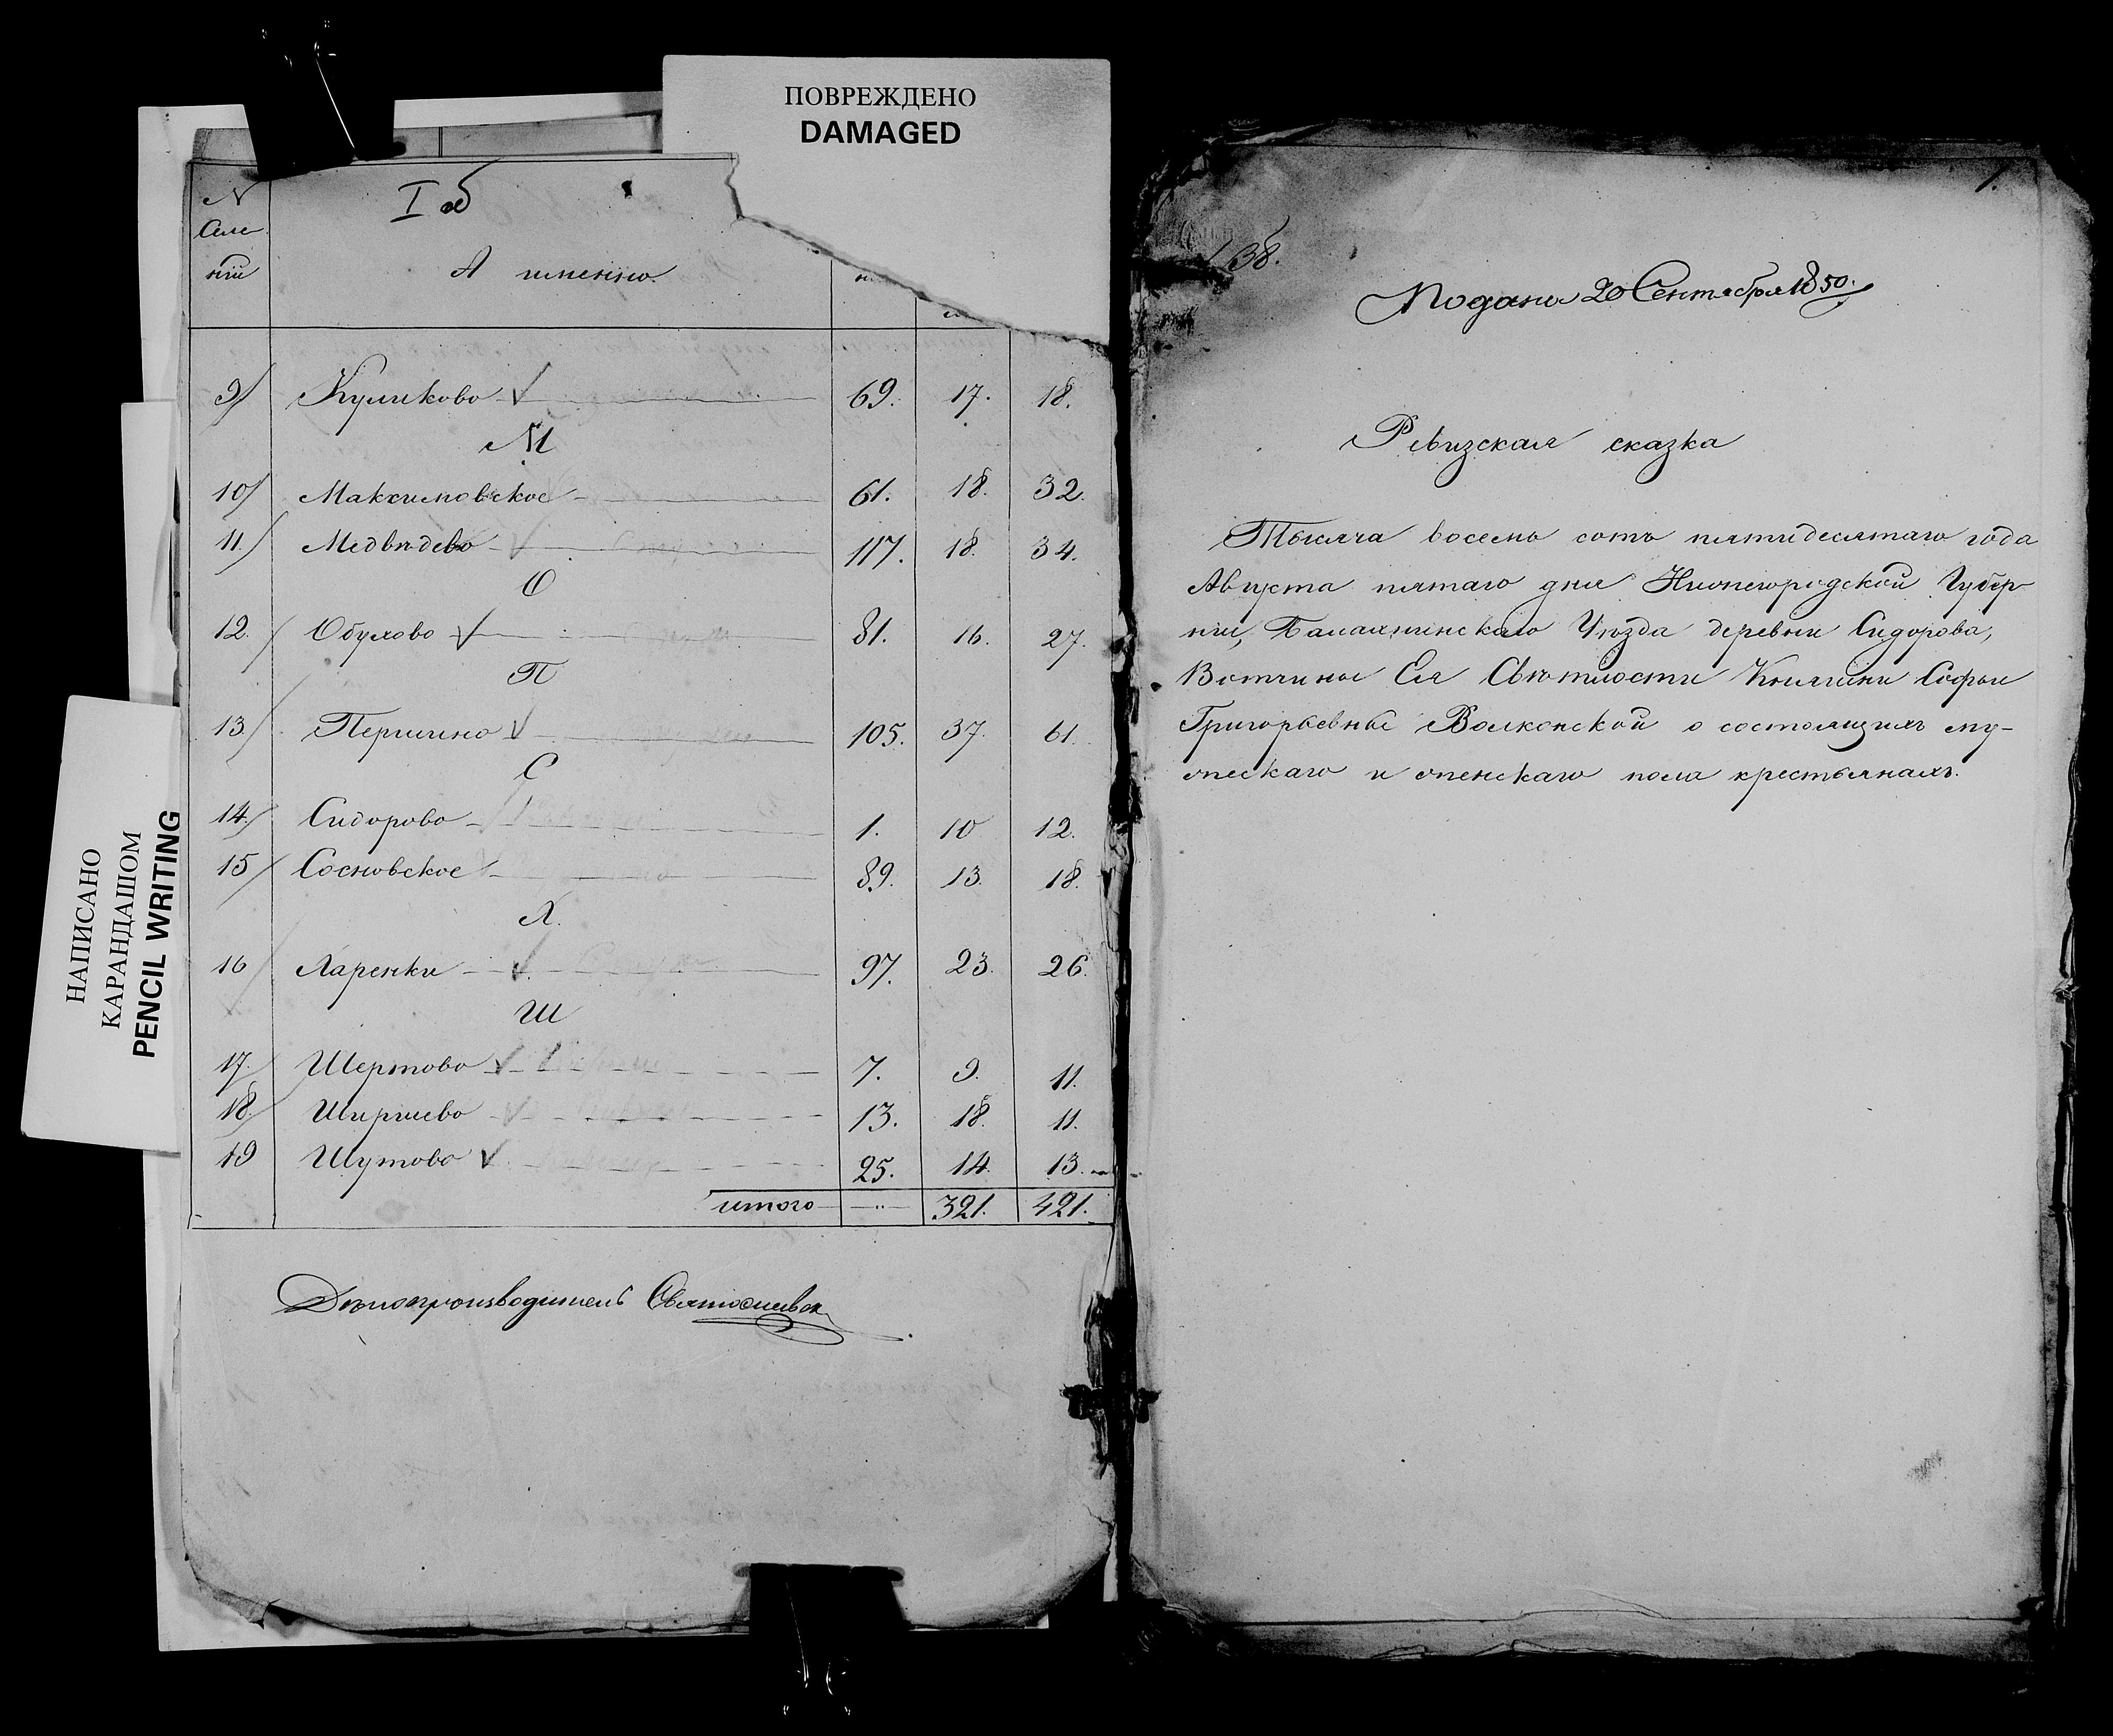 ПОВРЕЖДЕНО
DAMAGED
НАПИСАНО
КАРАНДАШОМ
PENCIL WRITING
N Селе
ній
Iоб
А именно.
9/ Куликово 69. 17. 18.
М
10/ Максимовское 61. 18. 32.
11./ Медвѣдево 117. 18. 34.
О
12./ Обухово 81. 16. 27.
П
13./ Першино 105. 37. 61.
С
14./ Сидорово 1. 10 12.
15/ Сосновское 89. 13. 18.
Л.
16 Ларенки 97. 23. 26.
Ш
17./ Шертово 7. 9. 11.
18./ Ширшево 13. 18. 11.
19 Шутово 25. 14. 13.
итого 321. 421.
Дѣлопроизводитель
1.
138.
Подана 20 Сентября 1850.
Ревизская сказка
Тысяча восемь сотъ пятидесятаго года
Августа пятаго дня Нижегородской Губер-
ніи, Балахнинскаго Уѣзда деревни Сидорова,
Вотчины Ея Свѣтлости Княгини Софьи
Григорьевны Волконской о состоящихъ му-
жескаго и женскаго пола крестьянахъ.